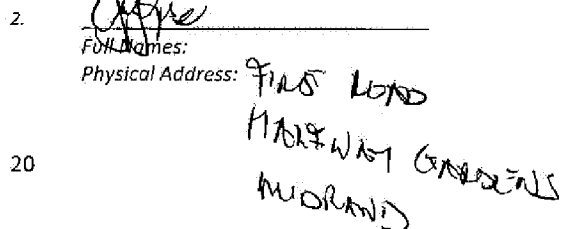 2.
Full Names:
Physical Address: FIRST ROAD
HALFWAY GARDENS
20
MIDRAND